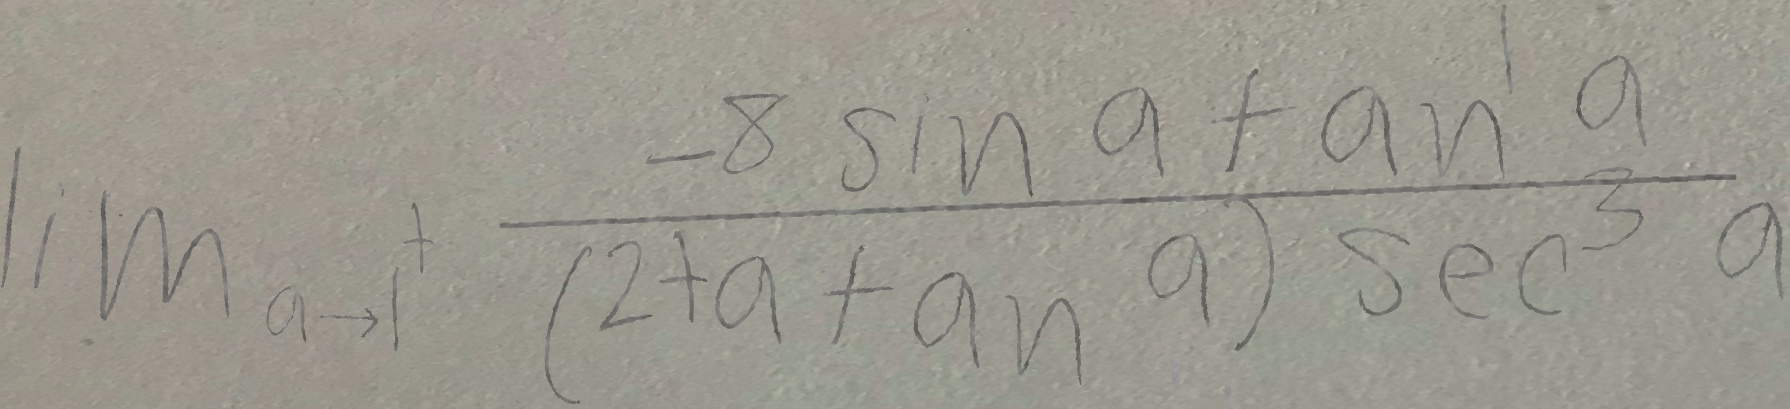 \lim_{a \to 1^+} \frac{-8 \sin a \tan^1 a}{(2 + a \tan a) \sec^3 a}